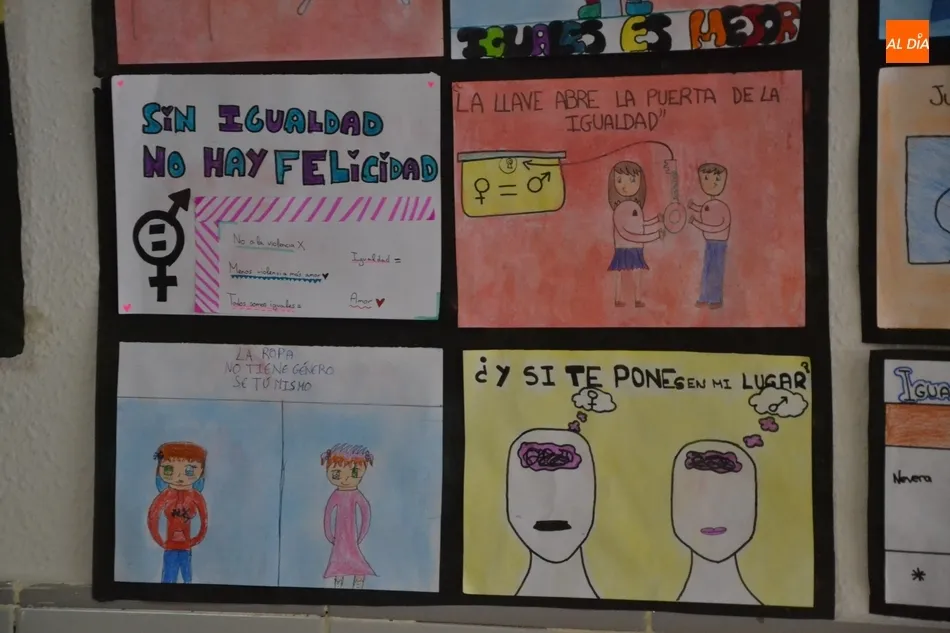 IGUALES ES MEJOR
AL DÍA
SIN IGUALDAD
NO HAY FELICIDAD
No a la violencia X
Menos violencia más amor
Todos somos iguales =
Igualdad =
Amor
"LA LLAVE ABRE LA PUERTA DE LA
IGUALDAD"
LA ROPA
NO TIENE GÉNERO
SE TÚ MISMO
¿Y SI TE PONES EN MI LUGAR?
JU
IGUA
Nevera